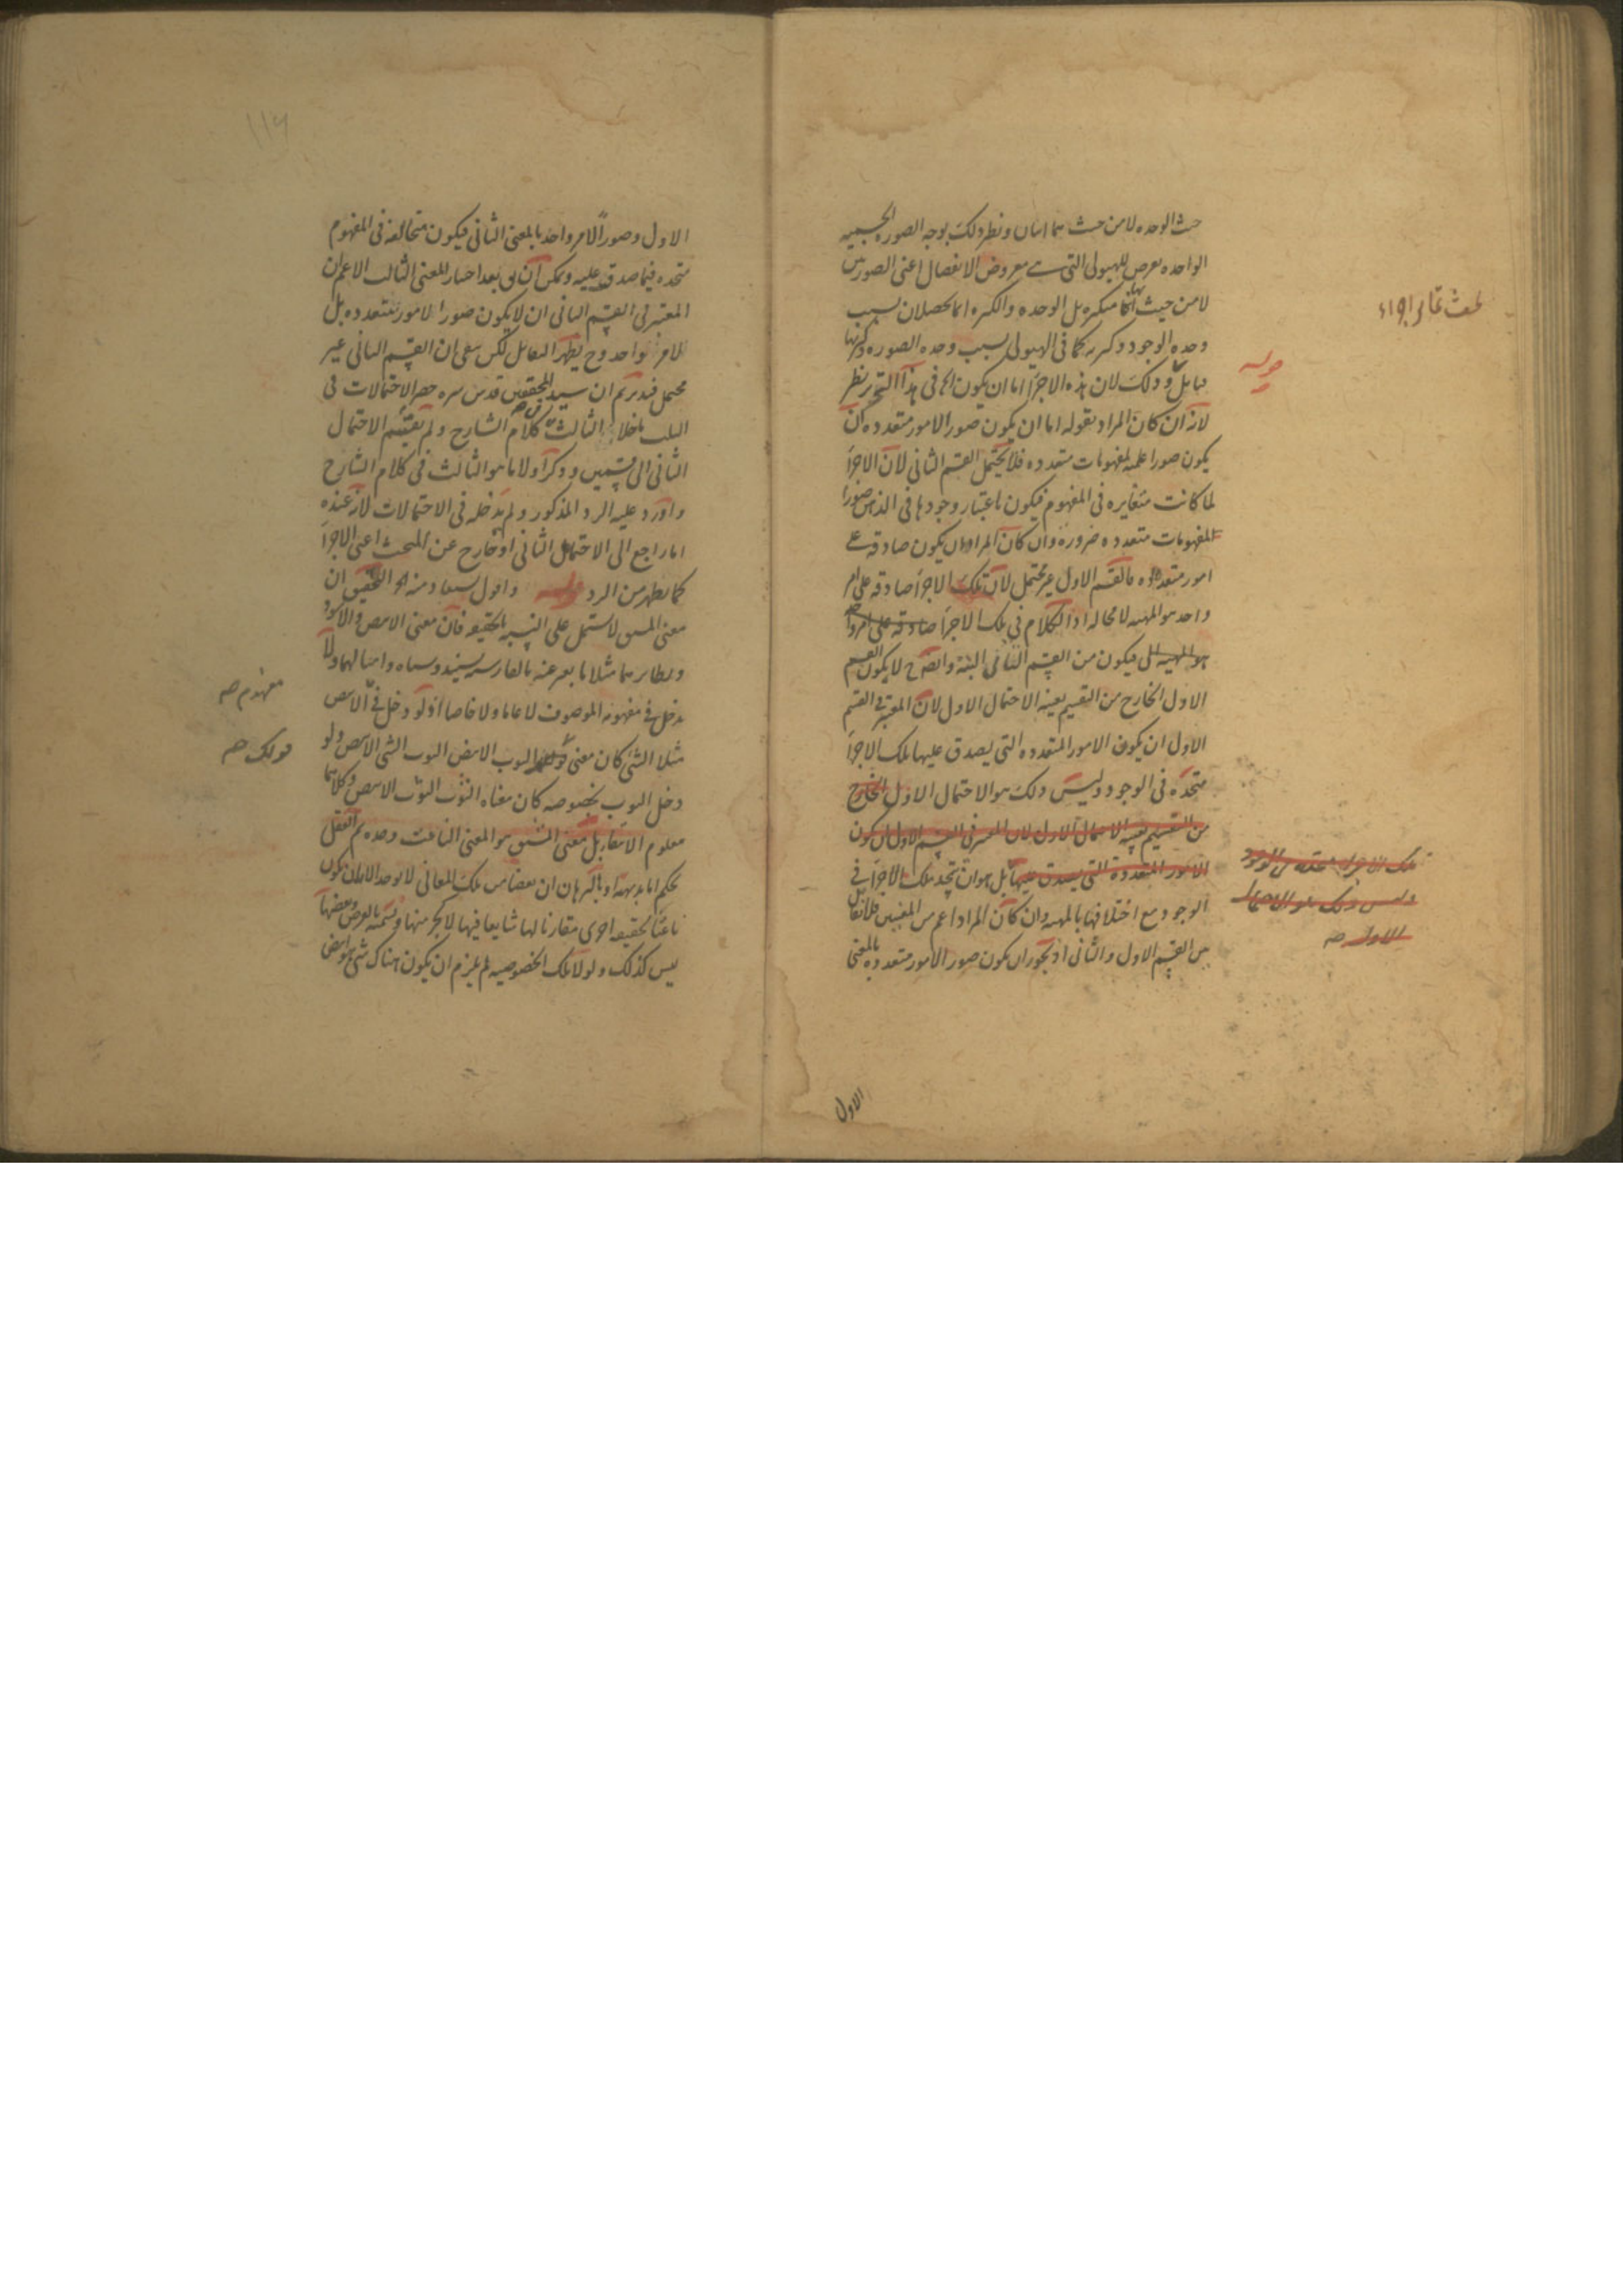 حيث الوحده لا من حيث هما اثنان ونظير ذلك بوجه الصورة الجسمية
الواحده يعرض للهيولى التي هي معروض الانفصال اعني الصورتين
لا من حيث انها متكثره بل الوحده والكثره انما يحصلان بسبب
وحده الوجود وكثرته كما في الهيولى بسبب وحده الصورة وكثرتها
قوله
وذلك لان هذه الاجزاء اما ان يكون الخ في هذا التحرير نظر
لانه ان كان المراد بقوله اما ان يكون صور الامور متعدده ان
يكون صورا علميه لمفهومات متعدده فلا يحتمل القسم الثاني لان الاجزاء
لما كانت متغايره في المفهوم فيكون باعتبار وجودها في الذهن صورا
لمفهومات متعدده ضرورة وان كان المراد ان يكون صادقه على
امور متعدده فالقسم الاول غير محتمل لان تلك الاجزاء صادقه على امر
واحد هو المهيه لا محاله اذ الكلام في تلك الاجزاء صادقة على امر واحد
هو المهيه فيكون من القسم الثاني البتة وايضا ح لا يكون القسم
الاول الخارج من التقسيم بعينه الاحتمال الاول لان المعتبر في القسم
الاول ان يكون الامور المتعدده التي يصدق عليها تلك الاجزاء
متحده في الوجود وليس ذلك هو الاحتمال الاول الخارج
من التقسيم بعينه الاحتمال الاول لان المعتبر في القسم الاول ان يكون
الامور المتعددة التي يصدق عليها بل هو ان تتحد تلك الاجزاء في
الوجود مع اختلافها بالمهيه وان كان المراد اعم من المعنيين فلا تقابل
بين القسم الاول والثاني اذ يجوز ان يكون صور الامور متعدده بالمعنى
تلك الاجزاء متحده في الوجود
وليس ذلك هو الاحتمال
الاول صح
الاول
الاول وصورا لامر واحد بالمعنى الثاني فيكون متخالفه في المفهوم
متحده فيما صدق عليه ويمكن ان يق بعد اختيار المعنى الثالث الاعم ان
المعتبر في القسم الثاني ان لا يكون صور الامور متعدده بل
لامر واحد وح يظهر التقابل لكن بقي ان القسم الثاني غير
محتمل فتدبر ثم ان سيد المحققين قدس سره حصر الاحتمالات في
الثلث كلام الشارح ولم يقسم الاحتمال
الثاني الى قسمين وذكر اولا ما هو الثالث في كلام الشارح
واورد عليه الرد المذكور ولم يدخله في الاحتمالات لانه عنده
اما راجع الى الاحتمال الثاني او خارج عن المبحث اعني الاجزاء
كما يظهر من الرد قوله واقول يستفاد منه الخ التحقيق ان
معنى المشتق لا يشتمل على النسبه بالحقيقه فان معنى الابيض والاسود
ونظائرهما مثلا ما يعبر عنه بالفارسيه بسفيد وسياه وامثالهما ولا
يدخل في مفهومه الموصوف لا عاما ولا خاصا اذ لو دخل في الابيض
مفهوم صح
مثلا الشئ كان معنى الثوب الابيض الثوب الشئ الابيض ولو
قولك صح
دخل الثوب بخصوصه كان معناه الثوب الثوب الابيض وكلاهما
معلوم الانتفاء بل معنى المشتق هو المعنى الناعت وحده ثم العقل
يحكم اما بديهة او بالبرهان ان بعضا من تلك المعاني لا يوجد الا بان يكون
ناعتا لحقيقه اخرى مقارنا لها شايعا فيها لا كجزء منها ويسميه بالعرض وبعضها
ليس كذلك ولولا تلك الخصوصيه لم يلزم ان يكون هناك شئ هو ابيض